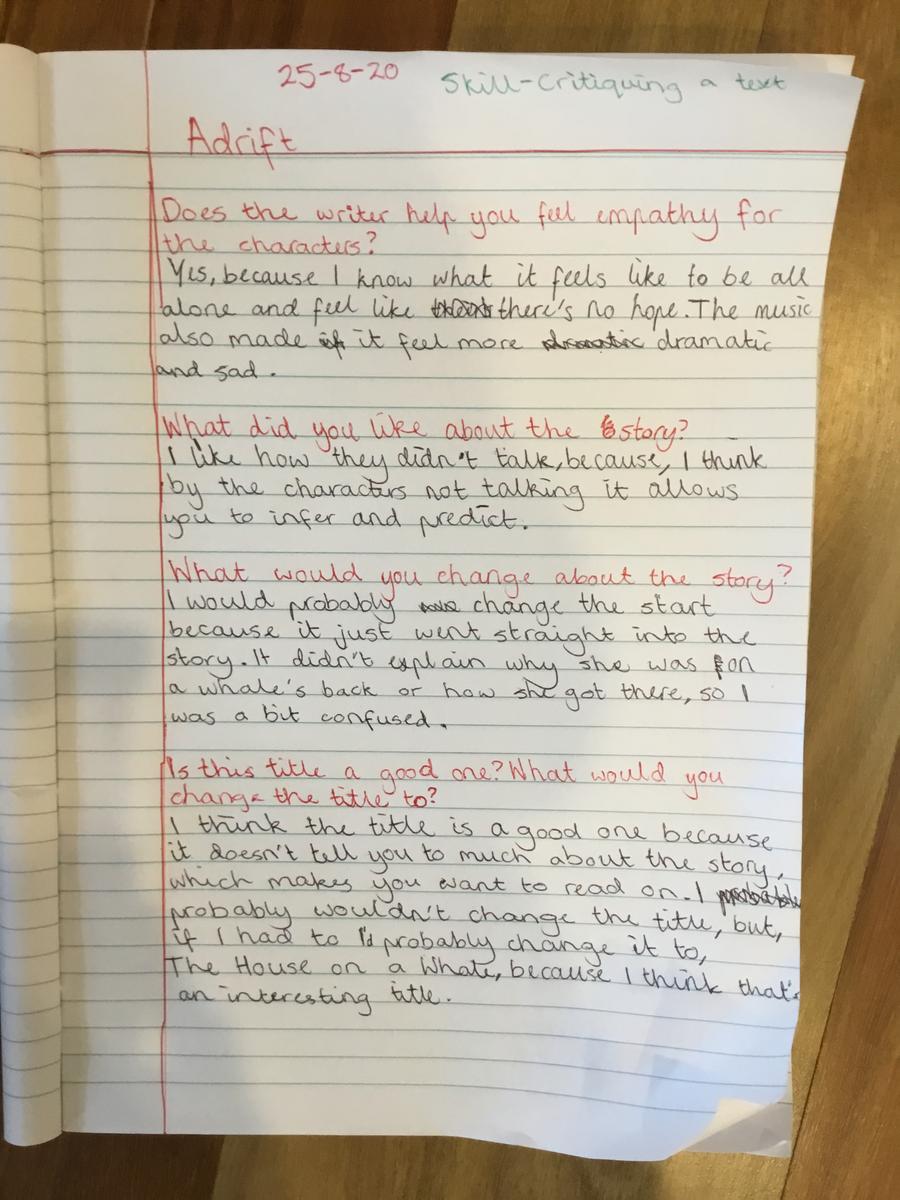 25-8-20 Skill-Critiquing a text
Adrift
Does the writer help you feel empathy for
the characters?
Yes, because I know what it feels like to be all
alone and feel like there's no hope. The music
also made it feel more dramatic
and sad.
What did you like about the story?
I like how they didn't talk, because, I think
by the characters not talking it allows
you to infer and predict.
What would you change about the story?
I would probably change the start
because it just went straight into the
story. It didn't explain why she was on
a whale's back or how she got there, so I
was a bit confused.
Is this title a good one? What would you
change the title to?
I think the title is a good one because
it doesn't tell you to much about the story,
which makes you want to read on. I
probably wouldn't change the title, but,
if I had to I'd probably change it to,
The House on a Whale, because I think that's
an interesting title.